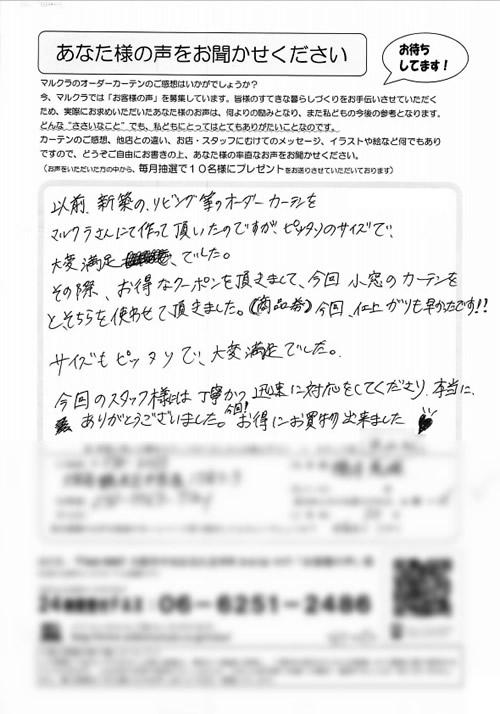 あなた様の声をお聞かせください
お待ち
してます！
マルクラのオーダーカーテンのご感想はいかがでしょうか？
今、マルクラでは「お客様の声」を募集しています。皆様のすてきな暮らしづくりをお手伝いさせていただく
ため、実際にお求めいただいたあなた様のお声は、何よりの励みとなり、また私どもの今後の参考となります。
どんな“ささいなこと”でも、私どもにとってはとてもありがたいことなのです。
カーテンのご感想、他店との違い、お店・スタッフにむけてのメッセージ、イラストや絵など何でもあり
ですので、どうぞご自由にお書きの上、あなた様の率直なお声をお聞かせください。
（お声をいただいた方の中から、毎月抽選で１０名様にプレゼントをお送りさせていただいております）
以前、新築の、リビング等のオーダーカーテンを
マルクラさんにて作って頂いたのですが、ピッタリのサイズで、
大変満足、でした。
その際、お得なクーポンを頂きまして、今回 小窓のカーテンを
と、そちらを使わせて頂きました。(商品券) 今回、仕上がりも早かったです!!
サイズもピッタリで、大変満足でした。
今回のスタッフ様には丁寧かつ迅速に対応をしてくださり、本当に、
ありがとうございました。今回!お得にお買物出来ました
06-6251-2486